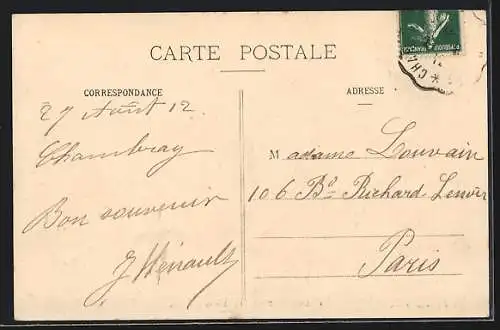 CARTE POSTALE
CORRESPONDANCE
27 Août 12
Chambray
Bon souvenir
J Hénault
ADRESSE
Madame Louvain
106 Bd Richard Lenoir
Paris
CHA